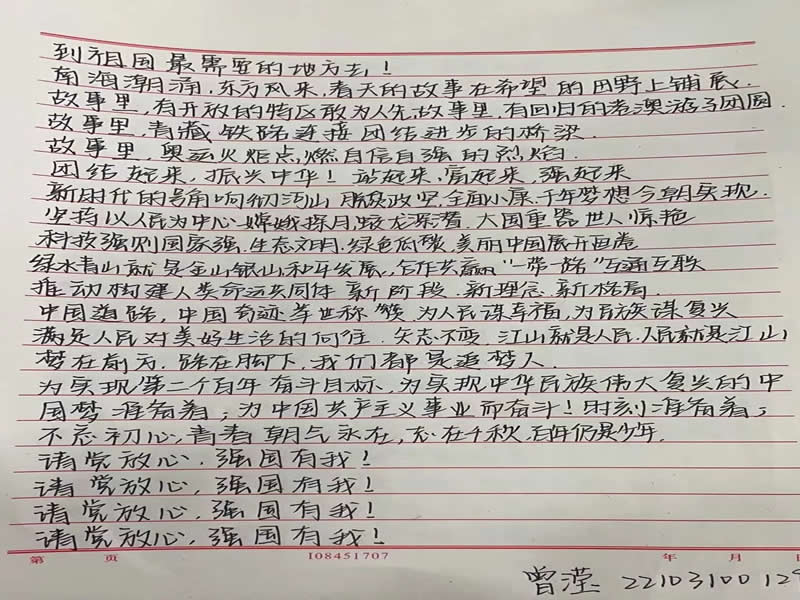 到祖国最需要的地方去！
南海潮涌,东方风来,春天的故事在希望的田野上铺展.
故事里,有开放的特区敢为人先,故事里,有回归的港澳游子团圆.
故事里,青藏铁路连接团结进步的桥梁.
故事里,奥运火炬点燃自信自强的烈焰.
团结起来,振兴中华！站起来,富起来,强起来
新时代的号角响彻江山 脱贫攻坚,全面小康,千年梦想今朝实现.
坚持以人民为中心 嫦娥探月,蛟龙深潜.大国重器世人惊艳
科技强则国家强.生态文明.绿色低碳.美丽中国展开画卷
绿水青山就是金山银山,和平发展,合作共赢"一带一路"互通互联
推动构建人类命运共同体 新阶段.新理念.新格局.
中国道路,中国奇迹举世称赞 为人民谋幸福,为民族谋复兴
满足人民对美好生活的向往.矢志不变.江山就是人民.人民就是江山
梦在前方,路在脚下,我们都是追梦人.
为实现第二个百年奋斗目标,为实现中华民族伟大复兴的中
国梦准备着；为中国共产主义事业而奋斗！时刻准备着；
不忘初心,青春朝气永在,志在千秋,百年仍是少年.
请党放心,强国有我！
请党放心,强国有我！
请党放心,强国有我！
请党放心,强国有我！
第 页 I08451707 年 月 日
曾滢 22103100129